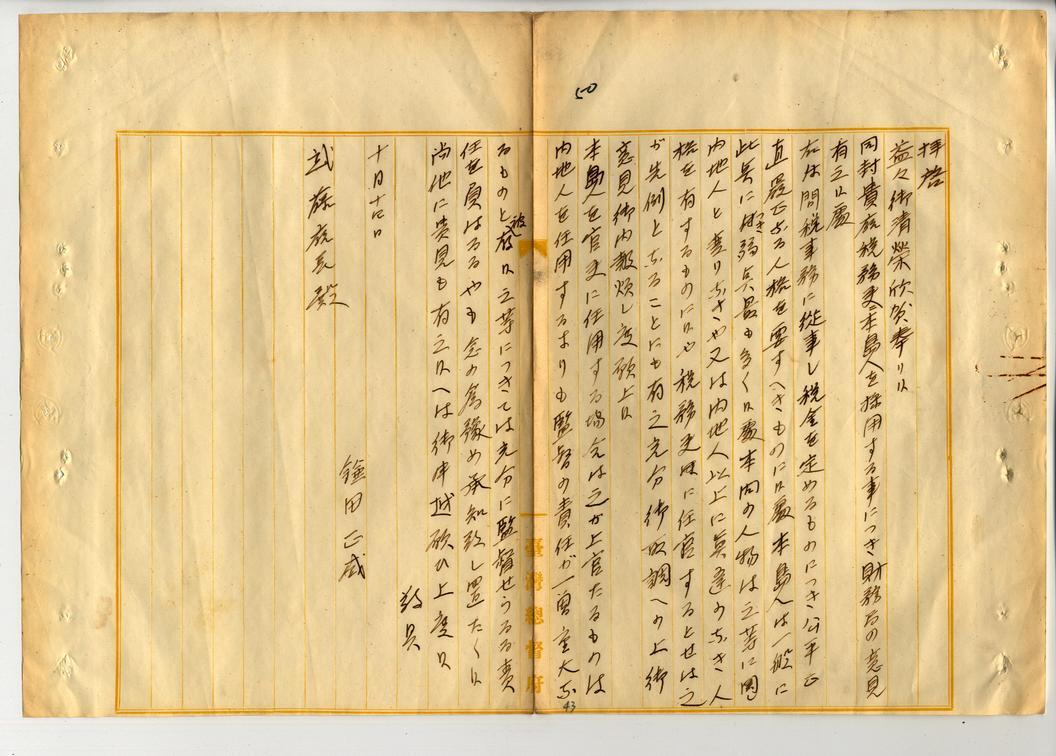 50
拝啓
益々御清栄欣賀奉り候
同封貴庁税務吏ニ本島人を採用する事につき財務局の意見
有之候処
右は間税事務に従事し税金を定めるものにつき公平正
直厳正なる人格を要すへきものに候処本島人は一般に
此点に薄弱点最も多く候処本問の人物は之等に関
内地人と変りなきや又は内地人以上に異違のなき人
格を有するものに候や税務吏は任官するとせは之
が先例となることにも有之充分御取調への上御
意見御内報煩し度願上候
本島人を官吏に任用する場合は之が上官たるものは
内地人を任用するよりも監督の責任が一層重大な
るものと被存候之等につきては充分に監督せらるる責
任を負はるるやも念の為豫め承知致し置たく候
尚他に貴見も有之候へは御申越願ひ上度候
敬具
十月十日
鎌田正威
武藤庁長殿
臺灣總督府
43